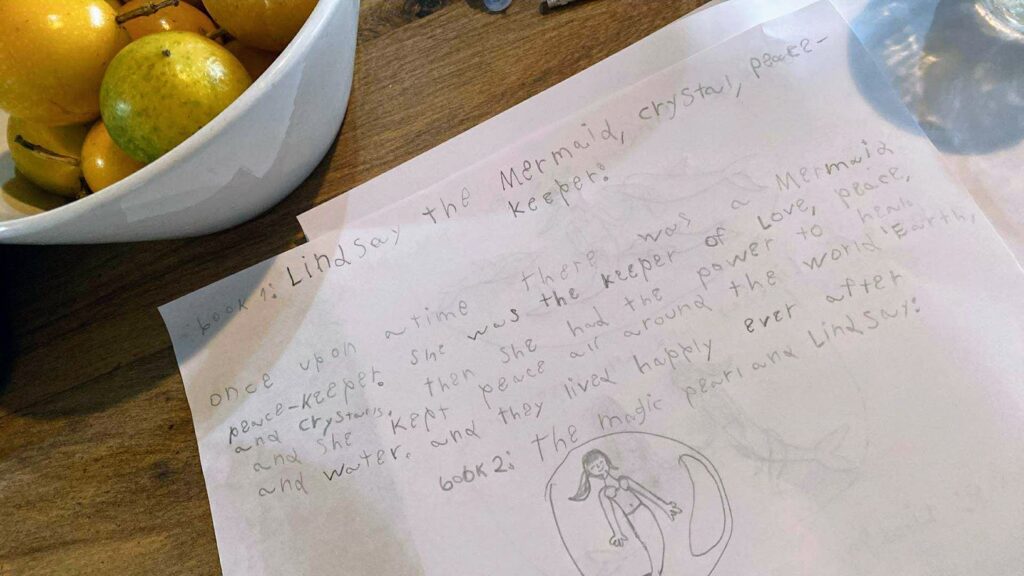 book 1: Lindsay the Mermaid, crystal, peace-
keeper:
once upon a time there was a Mermaid
peace-keeper. she was the keeper of Love, peace,
and crystals. then she had the power to heal.
and she kept peace all around the world Earth,
and water. and they lived happly ever after
book 2: the magic pearl and Lindsay: